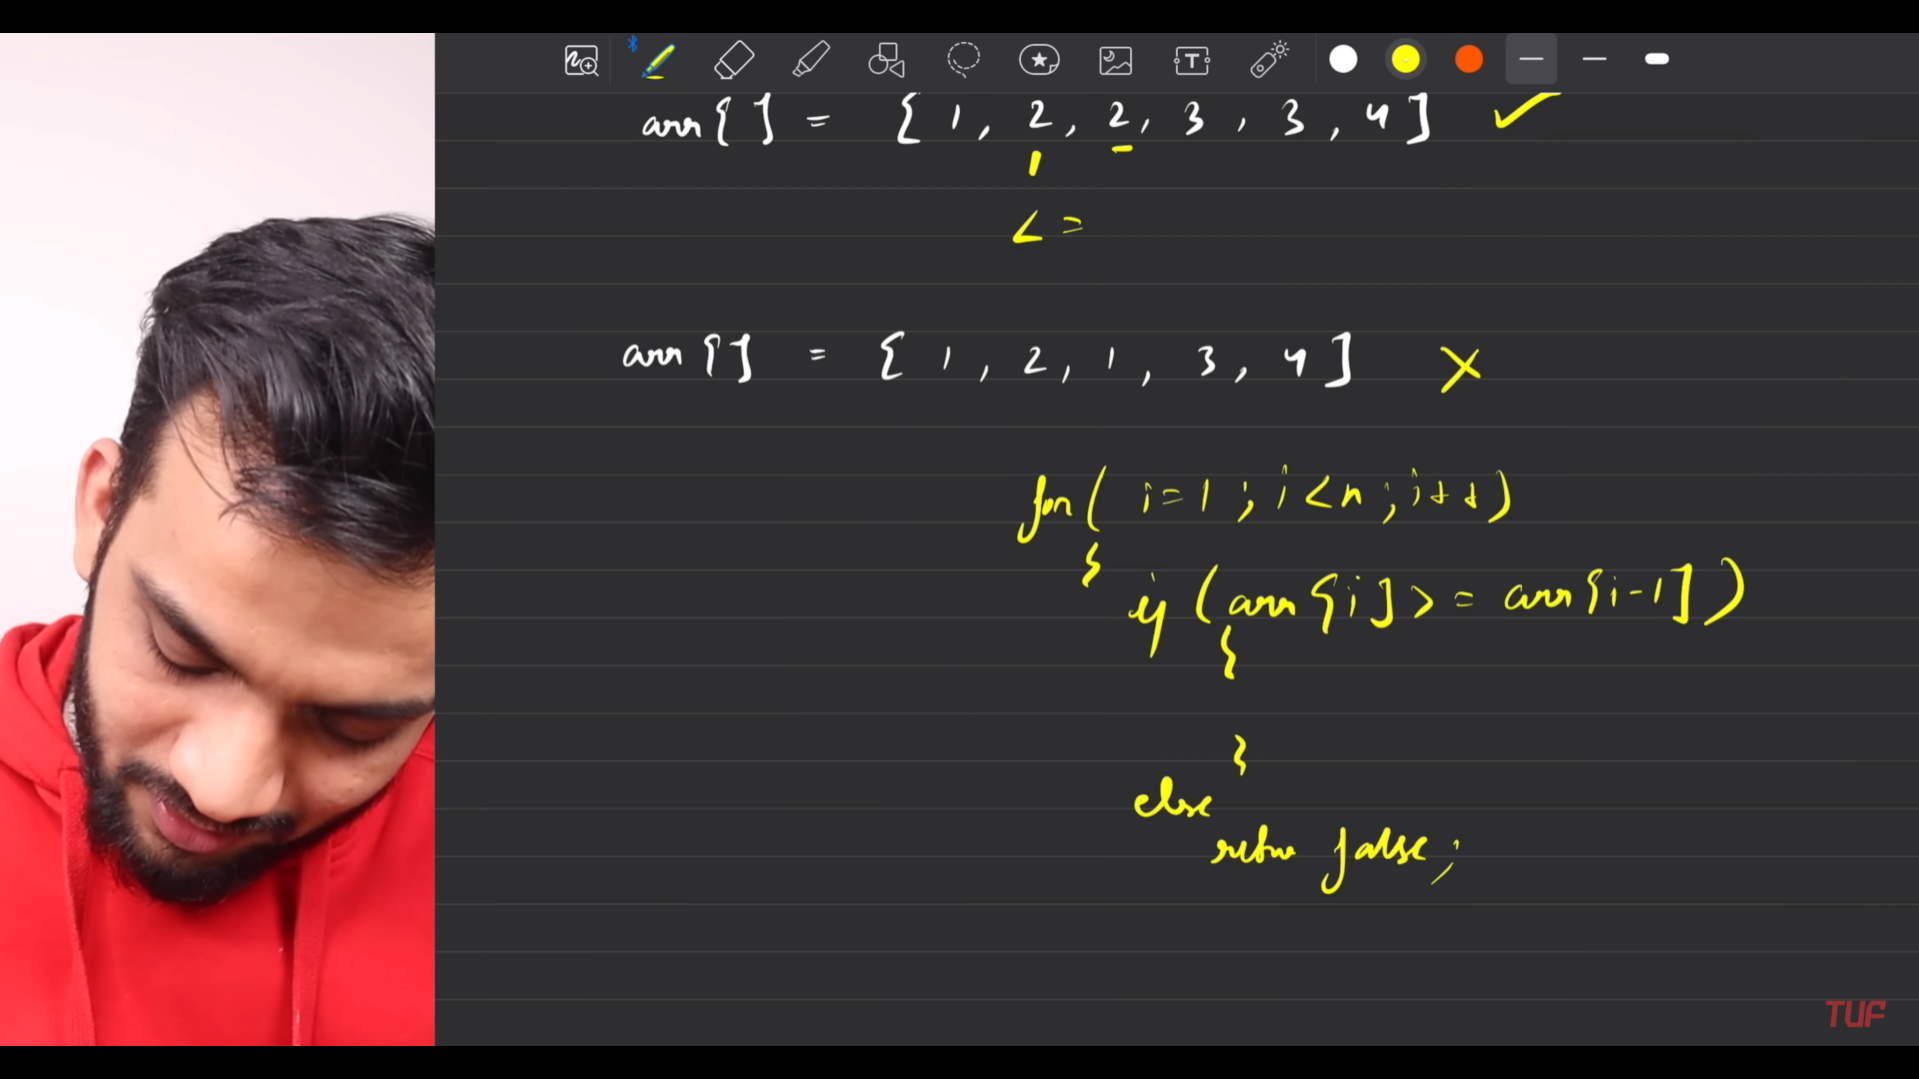 arr[ ] = [ 1, 2, 2, 3, 3, 4 ]
<=
arr[ ] = [ 1, 2, 1, 3, 4 ] X
for( i=1 ; i<n ; i++)
{
if (arr[i] >= arr[i-1])
{
}
else
return false;
TUF